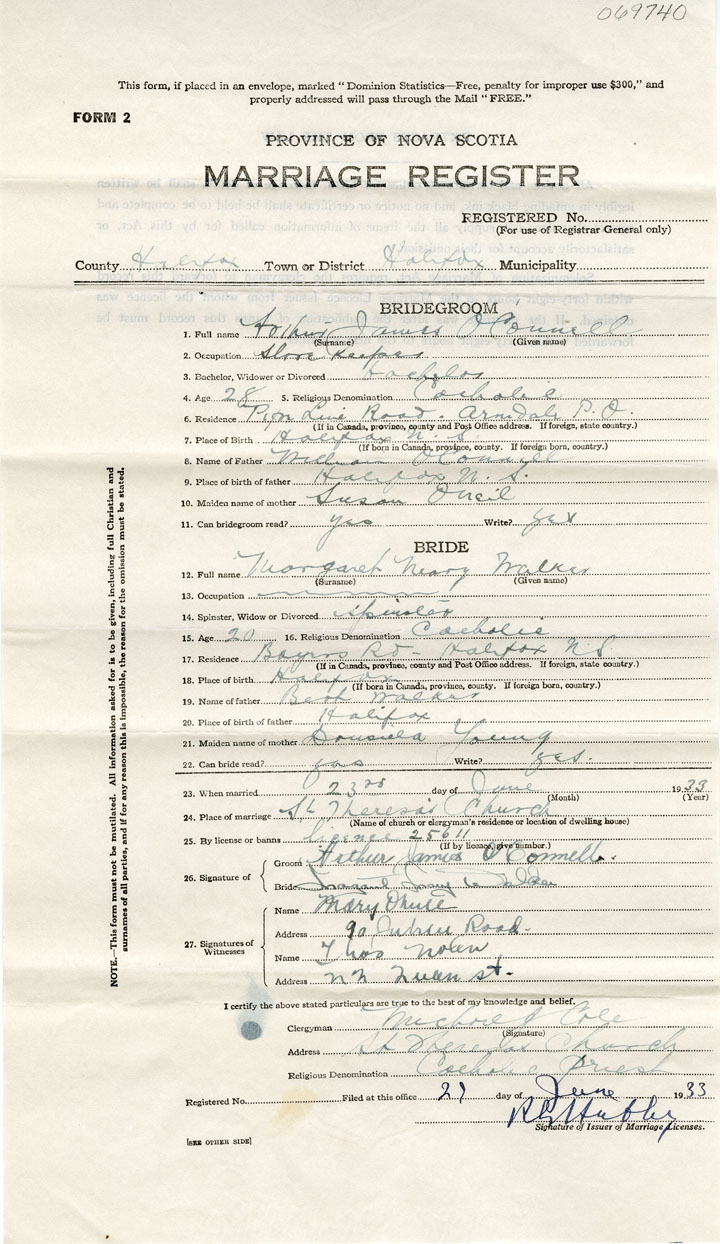 069740
This form, if placed in an envelope, marked "Dominion Statistics—Free, penalty for improper use $300," and
properly addressed will pass through the Mail "FREE."
FORM 2
PROVINCE OF NOVA SCOTIA
MARRIAGE REGISTER
REGISTERED No.
(For use of Registrar General only)
County Halifax Town or District Halifax Municipality
BRIDEGROOM
1. Full name Arthur James O'Connell
(Surname) (Given name)
2. Occupation Store Keeper
3. Bachelor, Widower or Divorced bachelor
4. Age 28 5. Religious Denomination Catholic
6. Residence Road. Armdale P.O.
(If in Canada, province, county and Post Office address. If foreign, state country.)
7. Place of Birth Halifax N.S.
(If born in Canada, province, county. If foreign born, country.)
8. Name of Father William O'Connell
9. Place of birth of father Halifax N.S.
10. Maiden name of mother Susan Oneil
11. Can bridegroom read? yes Write? yes
BRIDE
12. Full name Margaret Mary Walker
(Surname) (Given name)
13. Occupation
14. Spinster, Widow or Divorced spinster
15. Age 20 16. Religious Denomination Catholic
17. Residence Bayers Rd - Halifax NS
(If in Canada, province, county and Post Office address. If foreign, state country.)
18. Place of birth Halifax
(If born in Canada, province, county. If foreign born, country.)
19. Name of father Bert Walker
20. Place of birth of father Halifax
21. Maiden name of mother Young
22. Can bride read? yes Write? yes.
23. When married 23rd day of June 1933
(Month) (Year)
24. Place of marriage St. Theresa's Church
(Name of church or clergyman's residence or location of dwelling house)
25. By license or banns license 25611
(If by licence, give number.)
26. Signature of
Groom Arthur James O'Connell.
Bride
27. Signatures of Witnesses
Name Mary
Address 90 Road.
Name Thos Nolen
Address Queen st.
I certify the above stated particulars are true to the best of my knowledge and belief.
Clergyman Cole
(Signature)
Address St Theresas Church
Religious Denomination Catholic Priest
Registered No. Filed at this office 27 day of June 1933
Signature of Issuer of Marriage Licenses.
[SEE OTHER SIDE]
NOTE.—This form must not be mutilated. All information asked for is to be given, including full Christian and
surnames of all parties, and if for any reason this is impossible, the reason for the omission must be stated.